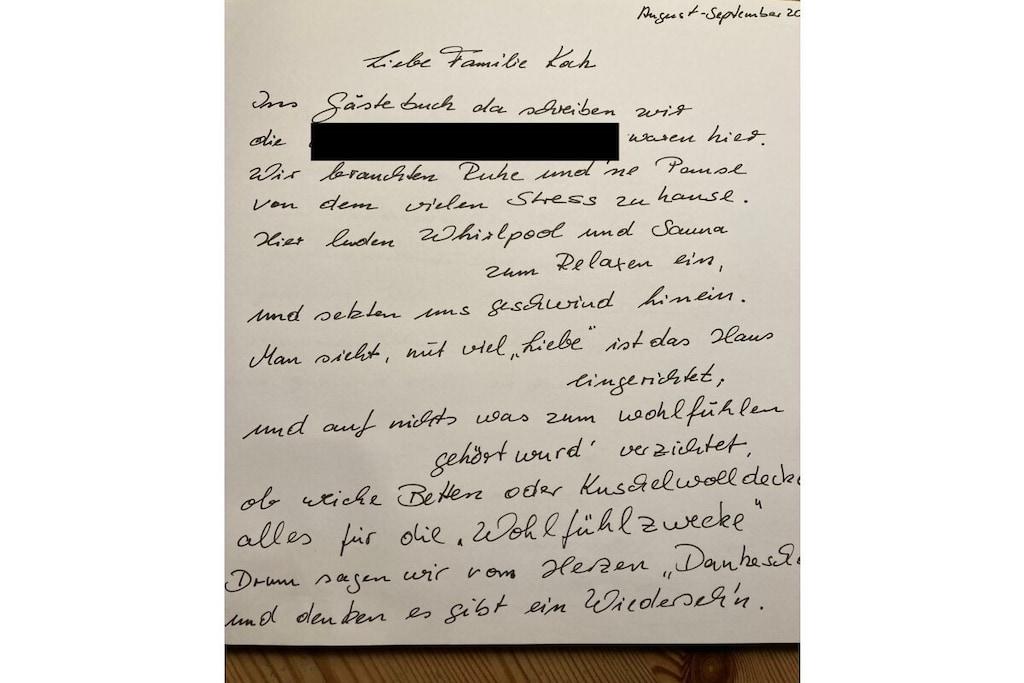 August-September 20
Liebe Familie Koch
Ins Gästebuch da schreiben wir
die waren hier.
Wir brauchten Ruhe und 'ne Pause
von dem vielen Stress zu hause.
Hier luden Whirlpool und Sauna
zum Relaxen ein,
und setzten uns geschwind hinein.
Man sieht, mit viel „Liebe" ist das Haus
eingerichtet,
und auf nichts was zum wohlfühlen
gehört wurd' verzichtet,
ob weiche Betten oder Kuschelwolldecke
alles für die „Wohlfühlzwecke"
Drum sagen wir vom Herzen „Dankesch
und denken es gibt ein Wiederseh'n.